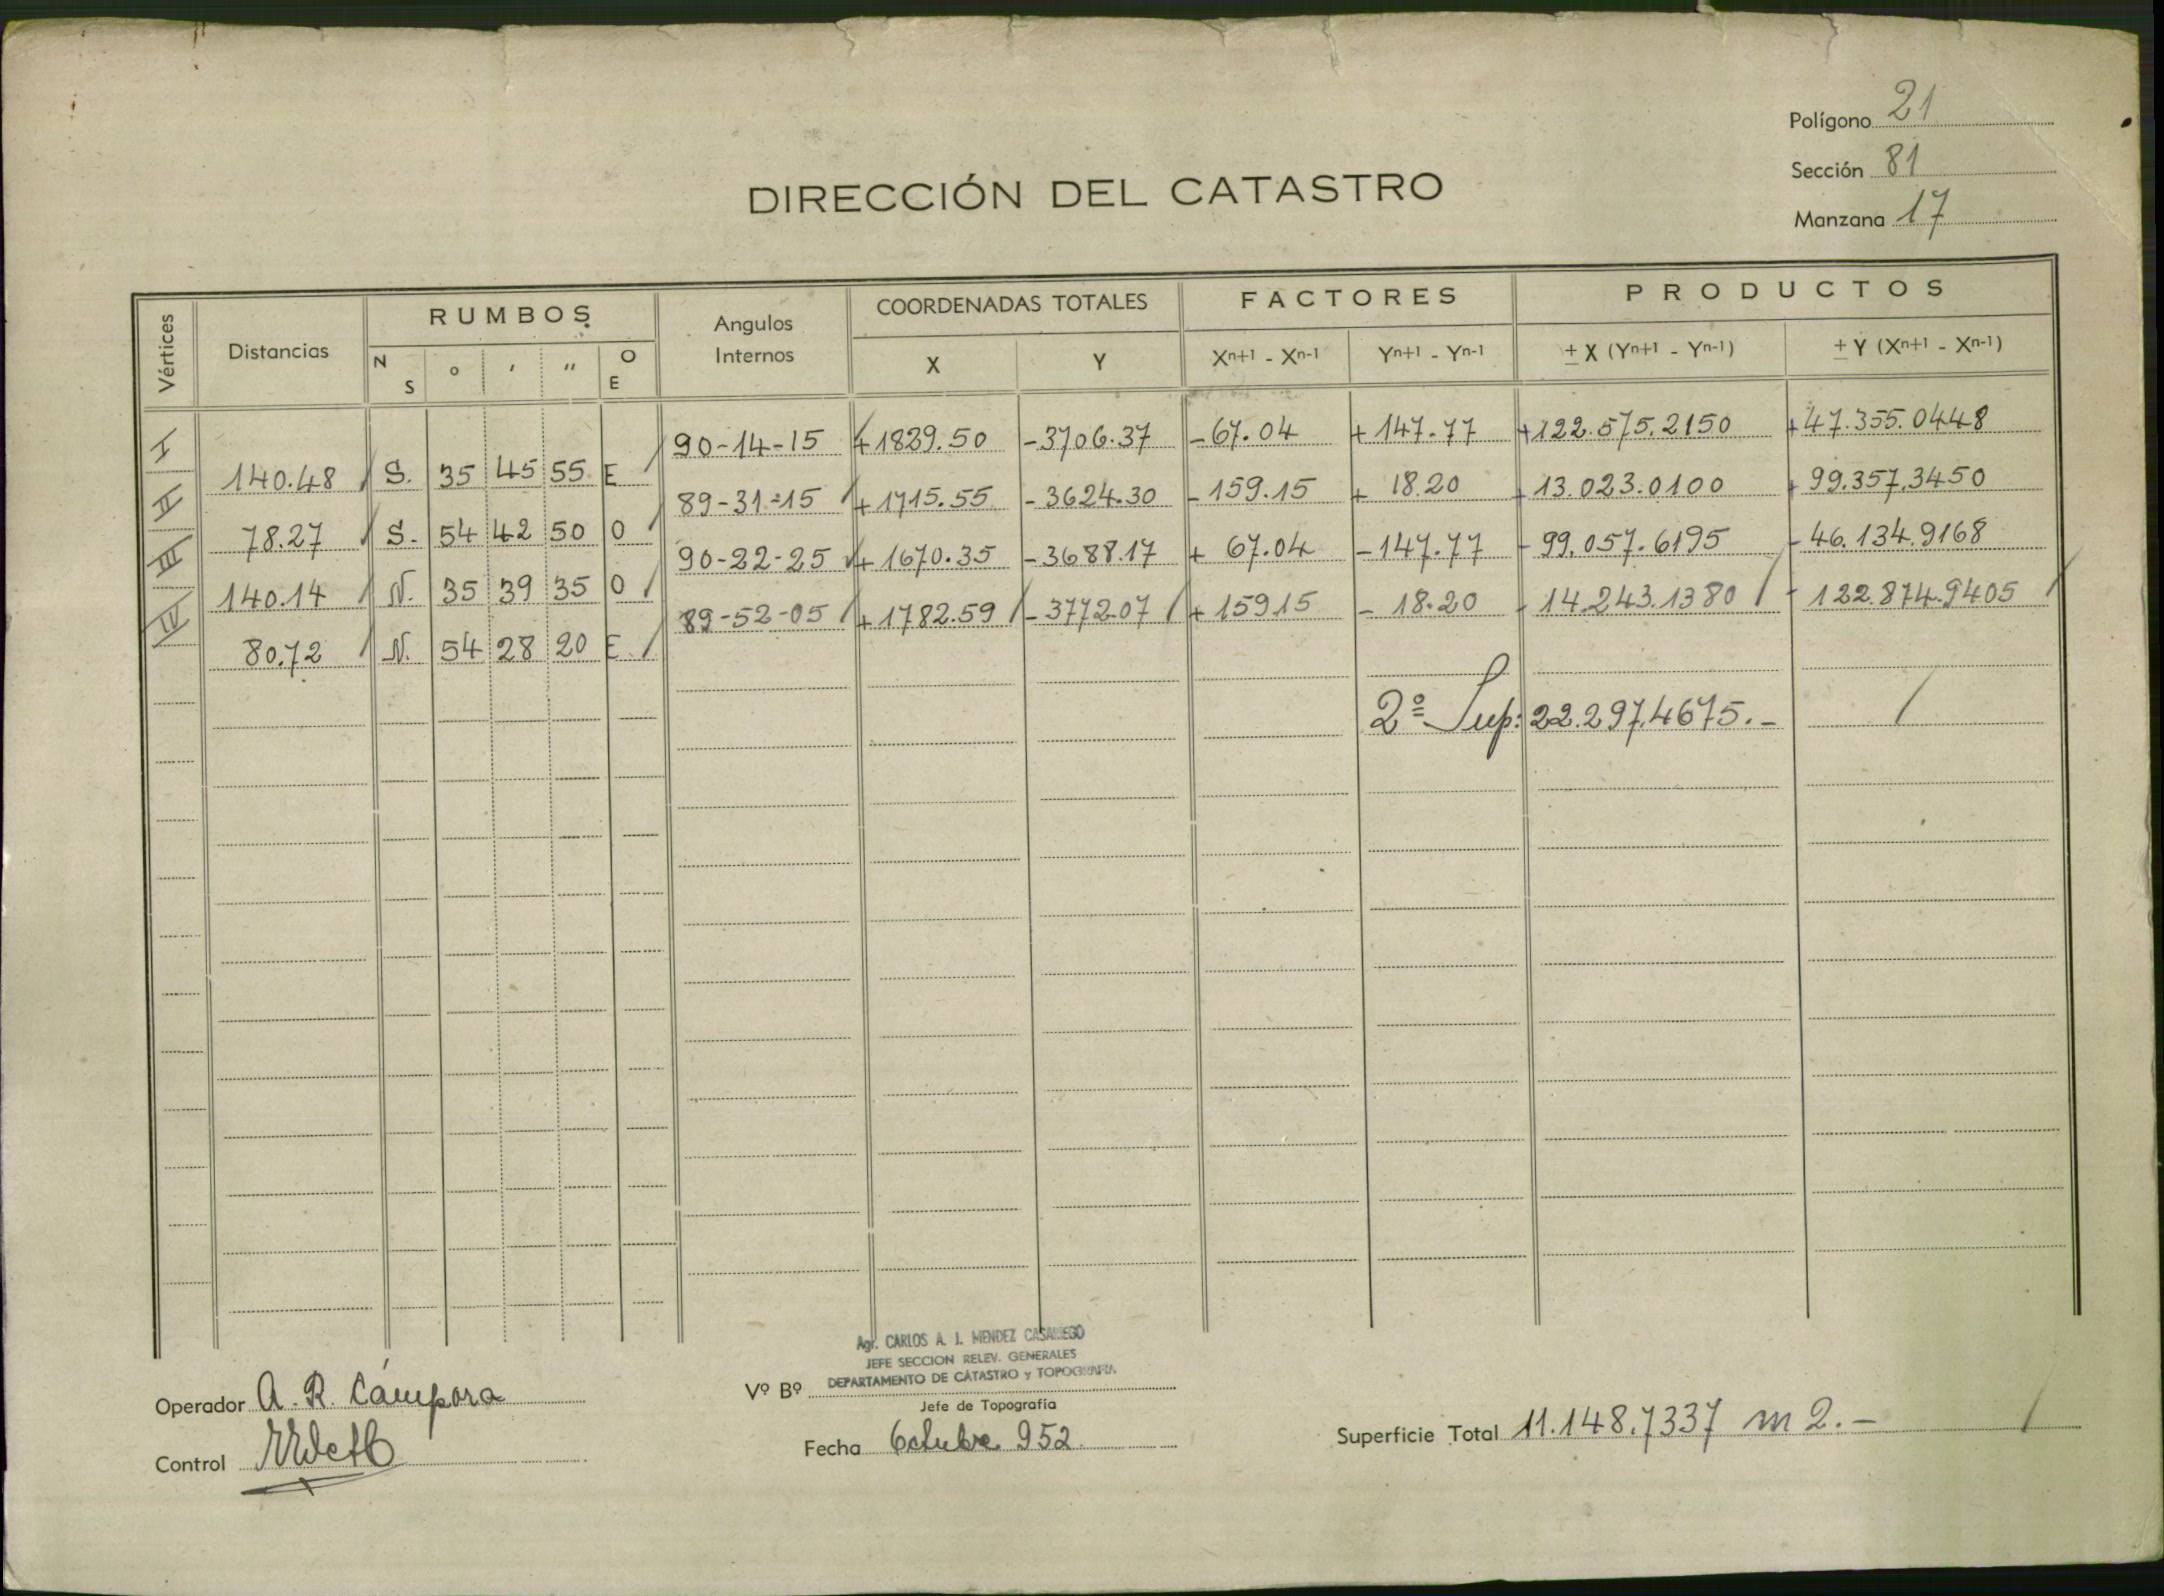 Polígono 21
Sección 81
Manzana 17
DIRECCIÓN DEL CATASTRO
Vértices Distancias RUMBOS Angulos Internos COORDENADAS TOTALES FACTORES PRODUCTOS
N S ° ′ ″ O E X Y Xn+1 - Xn-1 Yn+1 - Yn-1 ± X (Yn+1 - Yn-1) ± Y (Xn+1 - Xn-1)
I 90-14-15 +1829.50 -3706.37 -67.04 +147.77 +122.575.2150 +47.355.0448
140.48 S. 35 45 55 E
II 89-31-15 +1715.55 -3624.30 -159.15 + 18.20 +13.023.0100 +99.357.3450
78.27 S. 54 42 50 O
III 90-22-25 +1670.35 -3688.17 + 67.04 -147.77 -99.057.6195 -46.134.9168
140.14 N. 35 39 35 O
IV 89-52-05 +1782.59 -3772.07 +159.15 - 18.20 -14.243.1380 -122.874.9405
80.72 N. 54 28 20 E
2º Sup: 22.297.4675.-
Agr. CARLOS A. J. MENDEZ CASARIEGO
JEFE SECCION RELEV. GENERALES
DEPARTAMENTO DE CATASTRO y TOPOGRAFIA
Vº Bº
Jefe de Topografía
Operador A. R. Cámpora
Control
Fecha Octubre 952
Superficie Total 11.148.7337 m2.-